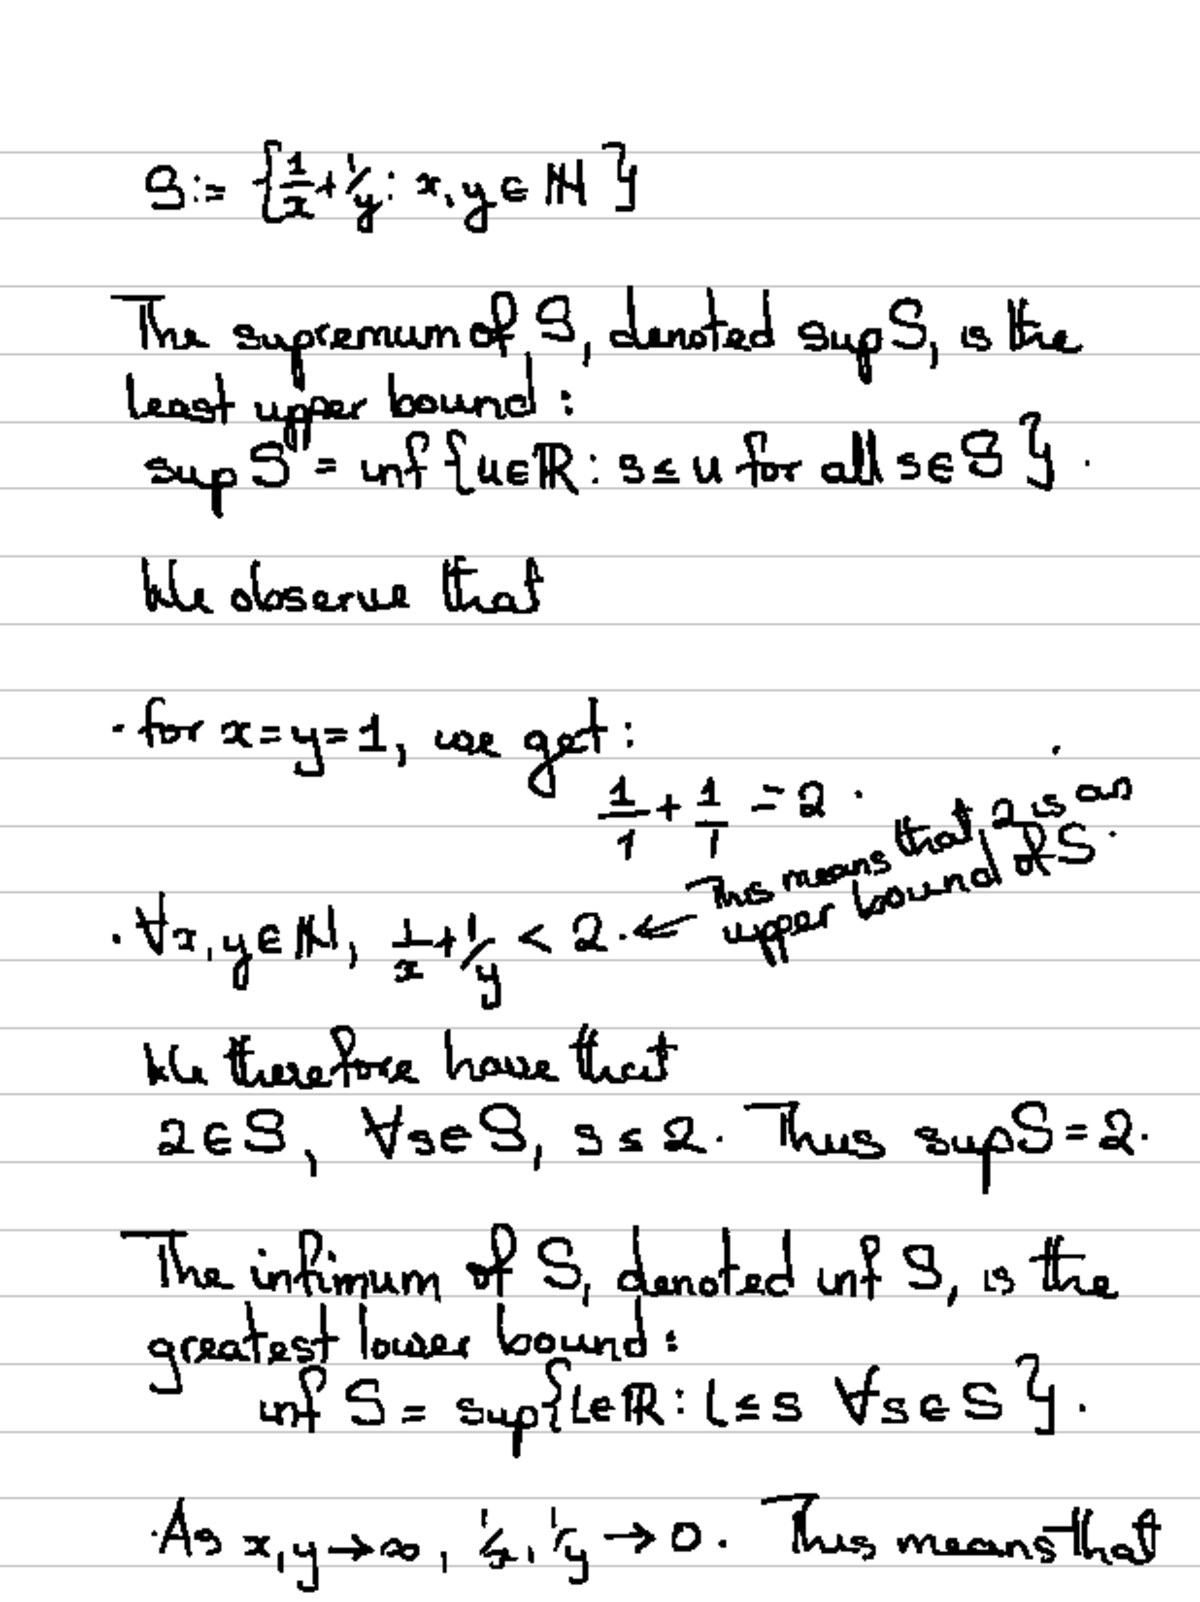 S := {1/x + 1/y : x, y ∈ ℕ}
The supremum of S, denoted sup S, is the
least upper bound :
sup S = inf {u ∈ ℝ : s ≤ u for all s ∈ S}.
We observe that
· for x = y = 1, we get :
1/1 + 1/1 = 2.
· ∀x, y ∈ ℕ, 1/x + 1/y < 2. ← This means that 2 is an
upper bound of S.
We therefore have that
2 ∈ S, ∀s ∈ S, s ≤ 2. Thus sup S = 2.
The infimum of S, denoted inf S, is the
greatest lower bound :
inf S = sup{l ∈ ℝ : l ≤ s ∀s ∈ S}.
· As x, y → ∞, 1/x, 1/y → 0. This means that